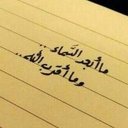 ما أبعد السَّماء ..
وما أقرب الله ..